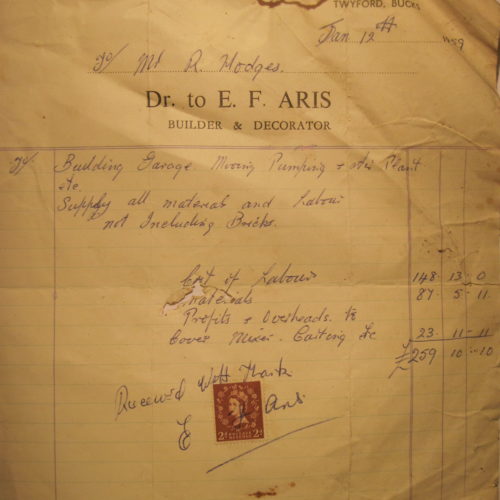 TWYFORD, BUCKS
Jan 12th 1959
To/ Mr R. Hodges.
Dr. to E. F. ARIS
BUILDER & DECORATOR
To/. Building Garage. Moving Pumping & other Plant
etc.
Supply all materials and Labour
not Including Bricks.
Cost of Labour 148 13 0
Materials 87 5 11
Profits & Overheads. to
Cover Mixer. Carting &c 23 11 11
£259 10 10
Received With Thanks
E F Aris
2d POSTAGE REVENUE 2d